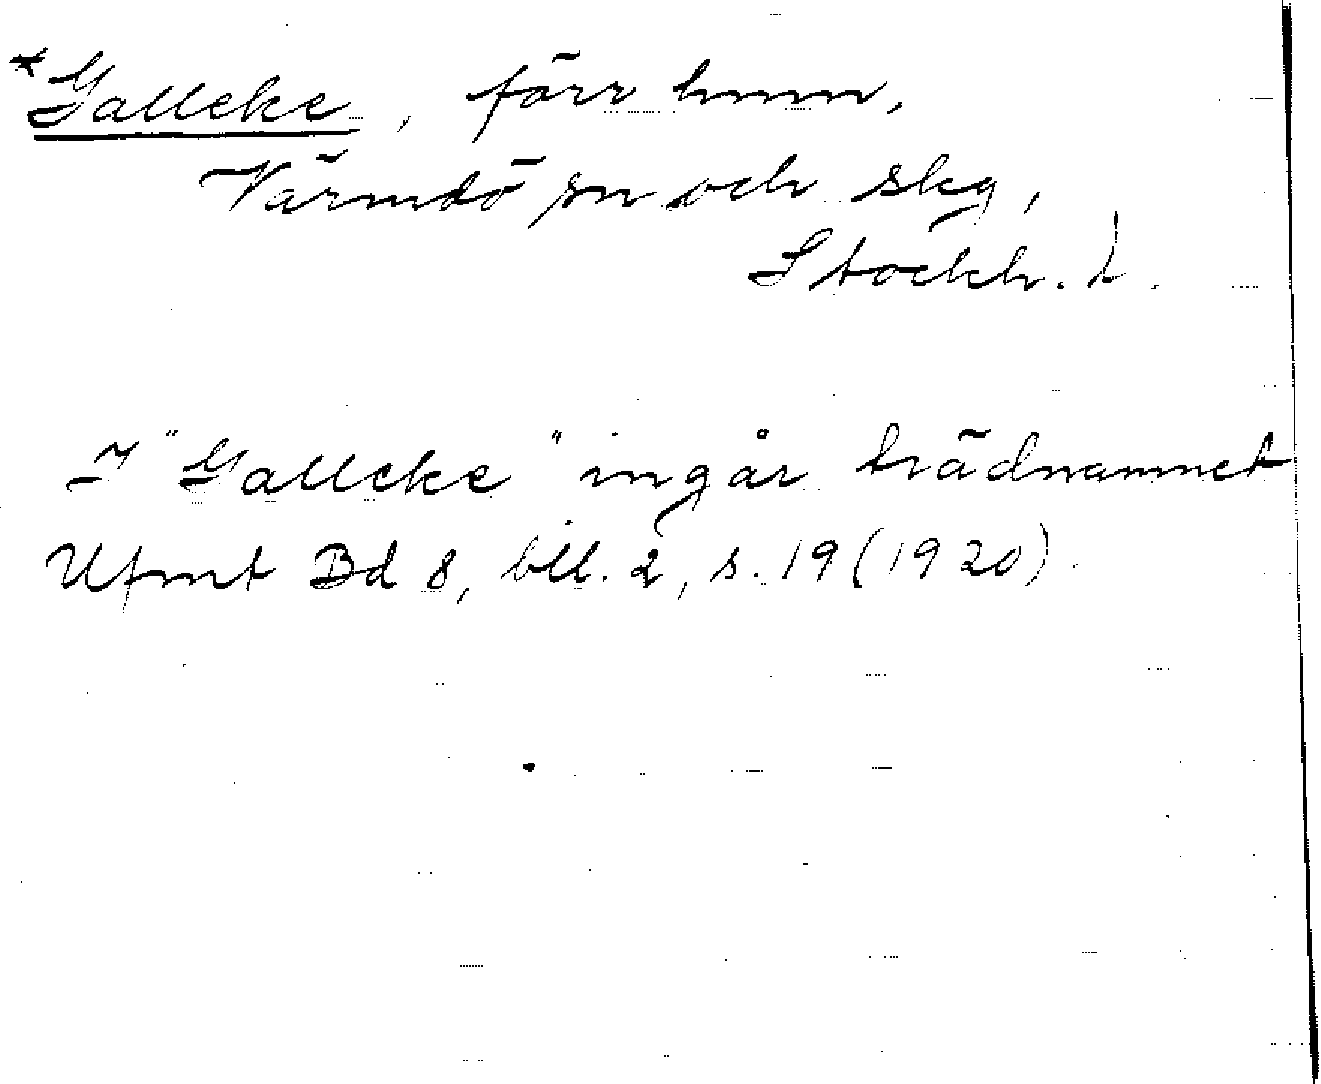 *Galleke, förr hmn,
Värmdö sn och skg,
Stockh. l.
I "Galleke" ingår trädnamnet
Ufmt Bd 8, bil. 2, s. 19 (1920).